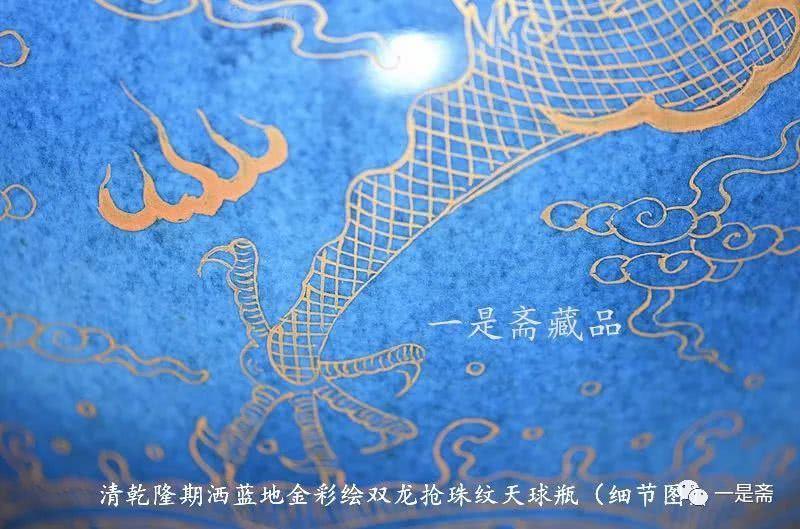 一是斋藏品
清乾隆期洒蓝地金彩绘双龙抢珠纹天球瓶（细节图
一是斋